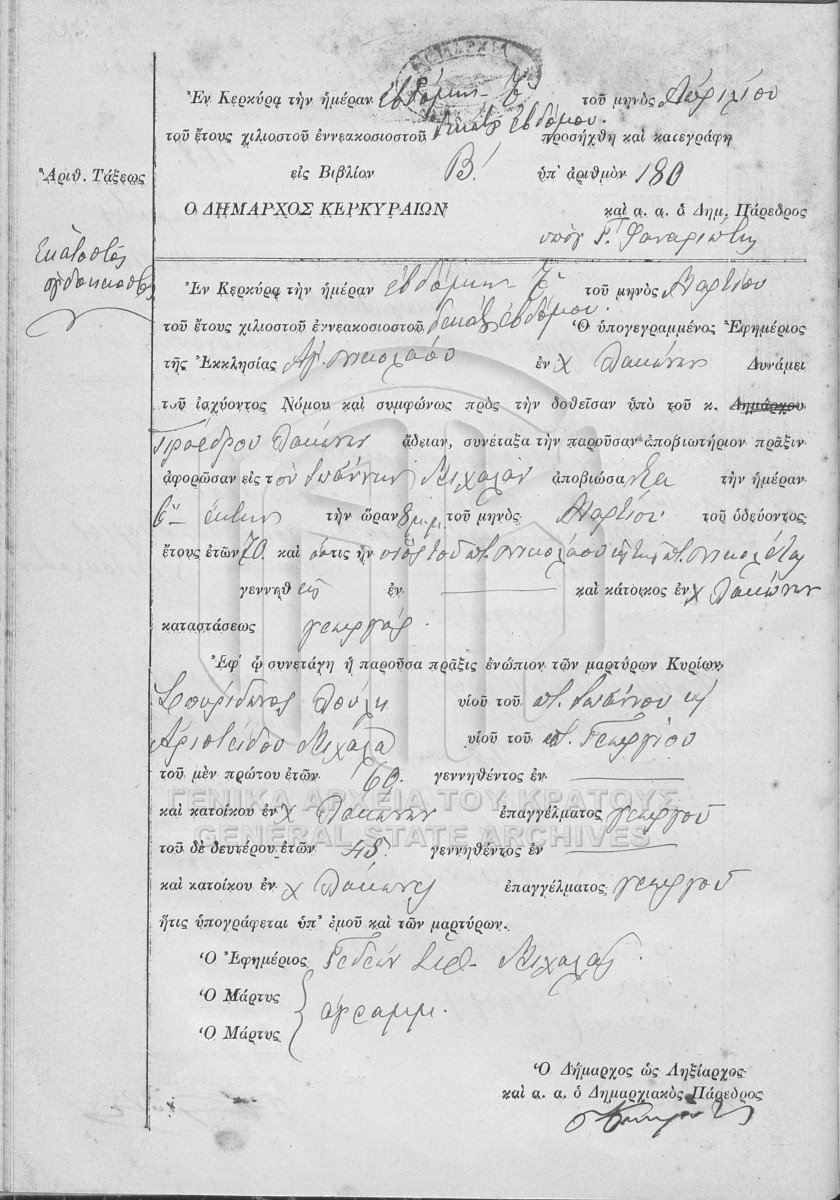 Ἐν Κερκύρᾳ τὴν ἡμέραν ἑβδόμην 7 τοῦ μηνὸς Ἀπριλίου
τοῦ ἔτους χιλιοστοῦ ἐννεακοσιοστοῦ δεκάτου ἑβδόμου. προσήχθη καὶ κατεγράφη
Ἀριθ. Τάξεως
εἰς Βιβλίον Β! ὑπ' ἀριθμὸν 180
Ὁ ΔΗΜΑΡΧΟΣ ΚΕΡΚΥΡΑΙΩΝ καὶ α. α. ὁ Δημ. Πάρεδρος
Ἑκατοστὸς
ὀγδοηκοστὸς
ὑπογ Γ. Φαναριώτης
Ἐν Κερκύρᾳ τὴν ἡμέραν ἑβδόμην 7 τοῦ μηνὸς Μαρτίου
τοῦ ἔτους χιλιοστοῦ ἐννεακοσιοστοῦ δεκάτου ἑβδόμου. Ὁ ὑπογεγραμμένος Ἐφημέριος
τῆς Ἐκκλησίας Ἁγ. Νικολάου ἐν χ Λακώνων Δυνάμει
τοῦ ἰσχύοντος Νόμου καὶ συμφώνως πρὸς τὴν δοθεῖσαν ὑπὸ τοῦ κ. Δημάρχου
Προέδρου Λακώνων ἄδειαν, συνέταξα τὴν παροῦσαν ἀποβιωτήριον πρᾶξιν
ἀφορῶσαν εἰς τὸν Ἰωάννην Μιχαλᾶν ἀποβιώσαντα τὴν ἡμέραν
6ην ἕκτην τὴν ὥραν μ.μ. τοῦ μηνὸς Μαρτίου τοῦ ὁδεύοντος
ἔτους ἐτῶν 70. καὶ ὅστις ἦν υἱὸς τοῦ ποτ. Νικολάου καὶ τῆς ποτ. Νικολέτας
γεννηθεὶς ἐν — καὶ κάτοικος ἐν χ Λακώνων
καταστάσεως γεωργός.
Ἐφ' ᾧ συνετάγη ἡ παροῦσα πρᾶξις ἐνώπιον τῶν μαρτύρων Κυρίων,
Σπυρίδωνος Λούλη υἱοῦ τοῦ ποτ. Ἰωάννου καὶ
Ἀριστείδου Μιχαλᾶ υἱοῦ τοῦ ποτ. Γεωργίου
τοῦ μὲν πρώτου ἐτῶν 60. γεννηθέντος ἐν —
ΓΕΝΙΚΑ ΑΡΧΕΙΑ ΤΟΥ ΚΡΑΤΟΥΣ
καὶ κατοίκου ἐν χ Λακώνων ἐπαγγέλματος γεωργοῦ
GENERAL STATE ARCHIVES
τοῦ δὲ δευτέρου ἐτῶν 45. γεννηθέντος ἐν —
καὶ κατοίκου ἐν χ Λάκωνες ἐπαγγέλματος γεωργοῦ
ἥτις ὑπογράφεται ὑπ' ἐμοῦ καὶ τῶν μαρτύρων.
Ὁ Ἐφημέριος Γεδεών Μιχαλᾶς
Ὁ Μάρτυς
ἀγράμμ.
Ὁ Μάρτυς
Ὁ Δήμαρχος ὡς Ληξίαρχος
καὶ α. α. ὁ Δημαρχιακὸς Πάρεδρος